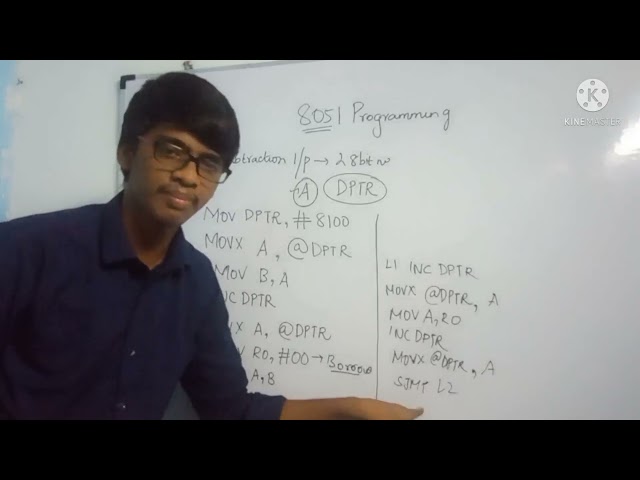 8051 Programming
KINEMASTER
btraction I/p → 2 8bt no
A DPTR
MOV DPTR, #8100
MOVX A, @DPTR
MOV B, A
INC DPTR
X A, @DPTR
V R0, #00 → Borrow
A, B
L1 INC DPTR
MOVX @DPTR, A
MOV A, R0
INC DPTR
MOVX @DPTR, A
SJMP L2